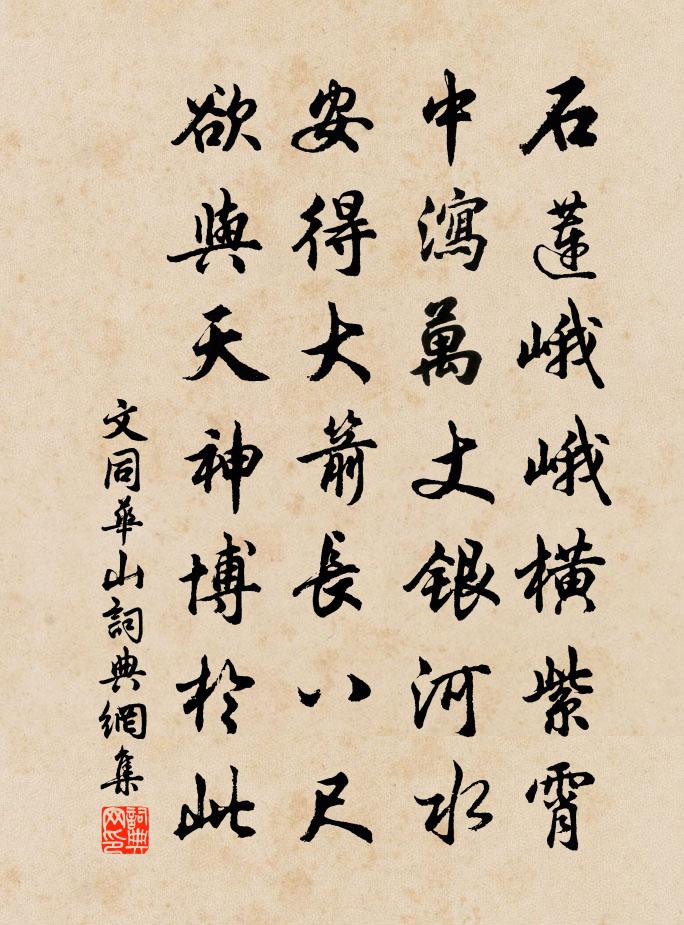 石蓮峨峨橫紫霄
中瀉萬丈銀河水
安得大箭長八尺
欲與天神博於此
文同華山詞典網集
詞典网印